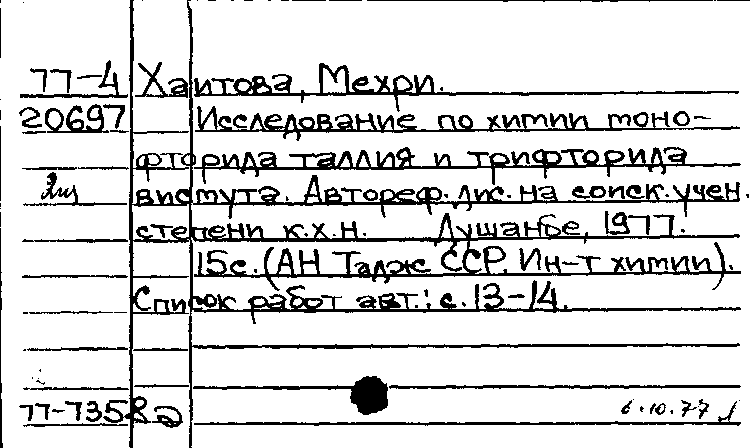 77-4 Хаитова, Мехри.
20697 Исследование по химии моно-
фторида таллия и трифторида
висмута. Автореф. дис. на соиск. учен.
степени к.х.н. Душанбе, 1977.
15с. (АН Тадж ССР. Ин-т химии).
Список работ авт.: с. 13-14.
77-7358а 6.10.77